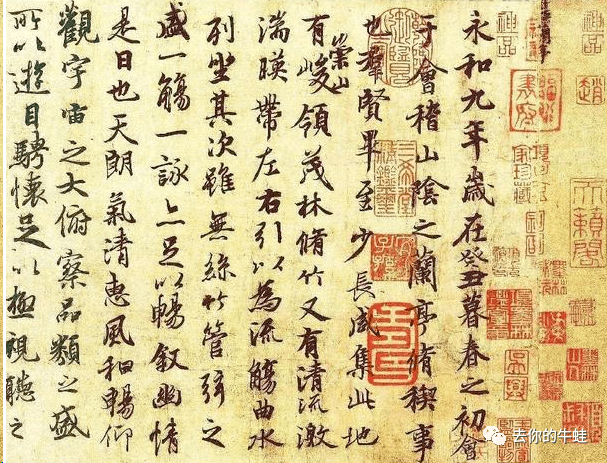 永和九年歲在癸丑暮春之初會
于會稽山陰之蘭亭脩稧事
也羣賢畢至少長咸集此地
有崇山峻領茂林脩竹又有清流激
湍暎帶左右引以為流觴曲水
列坐其次雖無絲竹管弦之
盛一觴一詠亦足以暢敘幽情
是日也天朗氣清惠風和暢仰
觀宇宙之大俯察品類之盛
所以遊目騁懷足以極視聽之
神品
去你的牛蛙